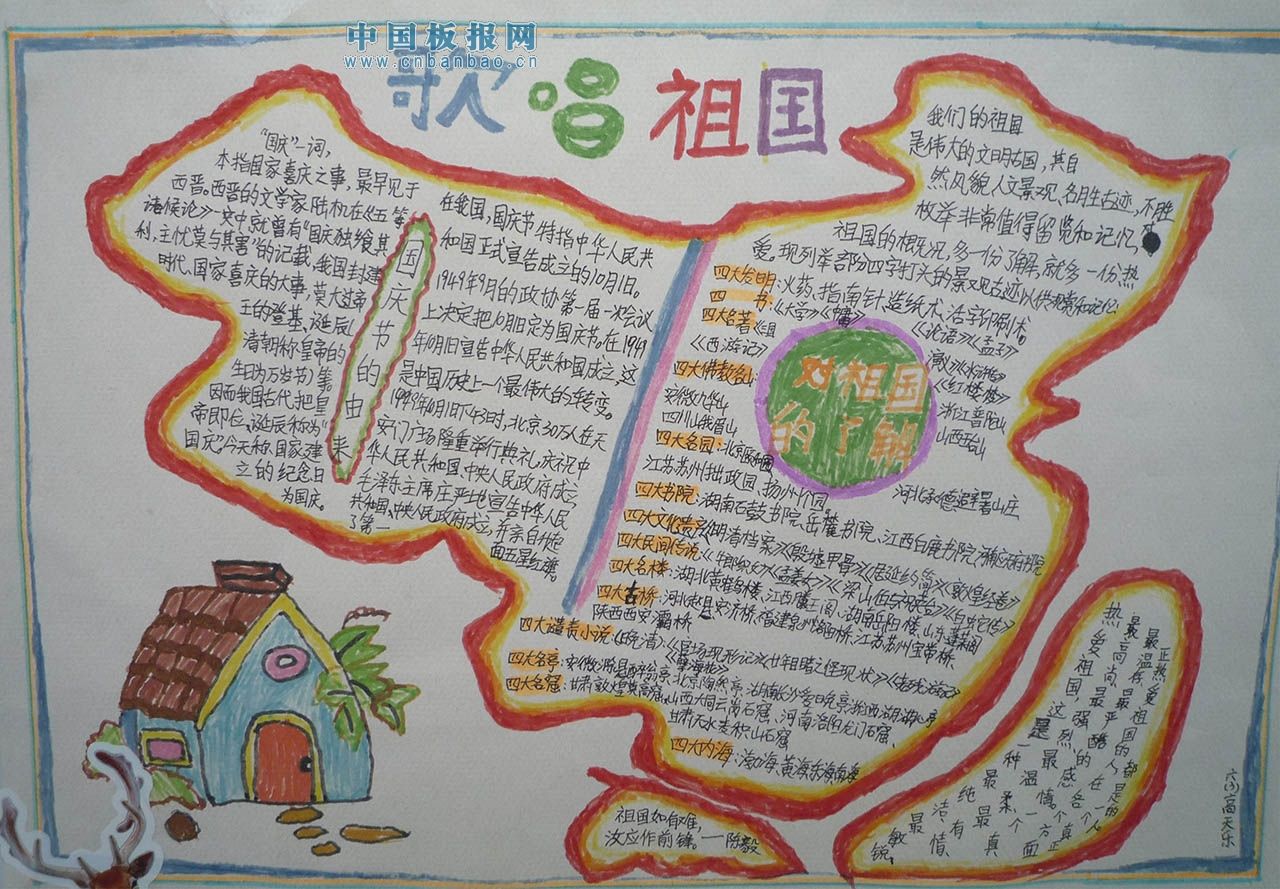 中国板报网
www.cnbanbao.cn
歌唱祖国
“国庆”一词，
本指国家喜庆之事，最早见于
西晋。西晋的文学家陆机在《五等
诸侯论》一文中就曾有“国庆独飨其
利，主忧莫与其害”的记载，我国封建
时代、国家喜庆的大事，莫大过帝
王的登基、诞辰
清朝称皇帝的
生日为万岁节）等。
因而我国古代把皇
帝即位、诞辰称为“
国庆”今天称国家建
立的纪念日
为国庆。
国庆节的由来
在我国，国庆节特指中华人民共
和国正式宣告成立的10月1日。
1949年9月的政协第一届一次会议
上决定把10月1日定为国庆节。在1949
年10月1日宣告中华人民共和国成立，这
是中国历史上一个最伟大的转变。
北京30万人在天
安门广场隆重举行典礼，庆祝中
华人民共和国中央人民政府成立
毛泽东主席庄严地宣告中华人民
共和国、中央人民政府成立，并亲自升起
了第一
面五星红旗。
我们的祖国
是伟大的文明古国，其自
然风貌、人文景观、名胜古迹，不胜
枚举非常值得留览和记忆，对
祖国的概况，多一份了解，就多一份热
爱。现列举部份四字打头的景观古迹以供
四大发明：火药、指南针、造纸术、活字印刷术。
四书：《大学》《中庸》《论语》《孟子》
四大名著《三国演义》《水浒》
《西游记》《红楼梦》
对祖国的了解
四大佛教名山
安徽九华山 浙江普陀山
四川峨眉山 山西五台山
四大名园：北京颐和园
河北承德避暑山庄
江苏苏州拙政园、扬州个园
四大书院：湖南石鼓书院、岳麓书院、江西白鹿书院、
四大文化遗产《明清档案》《殷墟甲骨》《居延约简》《敦煌经卷》
四大民间传说《牛郎织女》《孟姜女》《梁山伯与祝英台》《白蛇传》
四大名楼：湖北黄鹤楼、江西滕王阁、湖南岳阳楼、山东蓬莱阁
四大古桥：河北赵县安济桥、福建泉州洛阳桥、江苏苏州宝带桥、
陕西西安灞桥
四大谴责小说《官场现形记》《老残游记》
《孽海花》
四大名亭：安徽滁县醉翁亭、北京陶然亭、湖南长沙爱晚亭、浙江西湖湖心亭
四大名窟：甘肃敦煌莫高窟、山西大同云岗石窟、河南洛阳龙门石窟、
甘肃天水麦积山石窟
四大内海：渤海、黄海、东海、南海
祖国如有难，
汝应作前锋。——陈毅
热爱祖国，这是一种最纯洁、最敏锐、
最高尚、最强烈、最温柔、最有情、
最温存、最严酷的感情。一个真
正热爱祖国的人，在各个方面都是一个真正的人